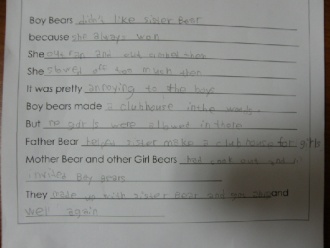 Boy Bears didn't like sister Bear
because she always won
She out ran and out
She showed off too much won
It was pretty annoying to the boys
Boy bears made a clubhouse in the woods
But no girls were allowed in there
Father Bear helped sister make a clubhouse for girls
Mother Bear and other Girl Bears had
invited Boy Bears
They made up with sister Bear and and
well again